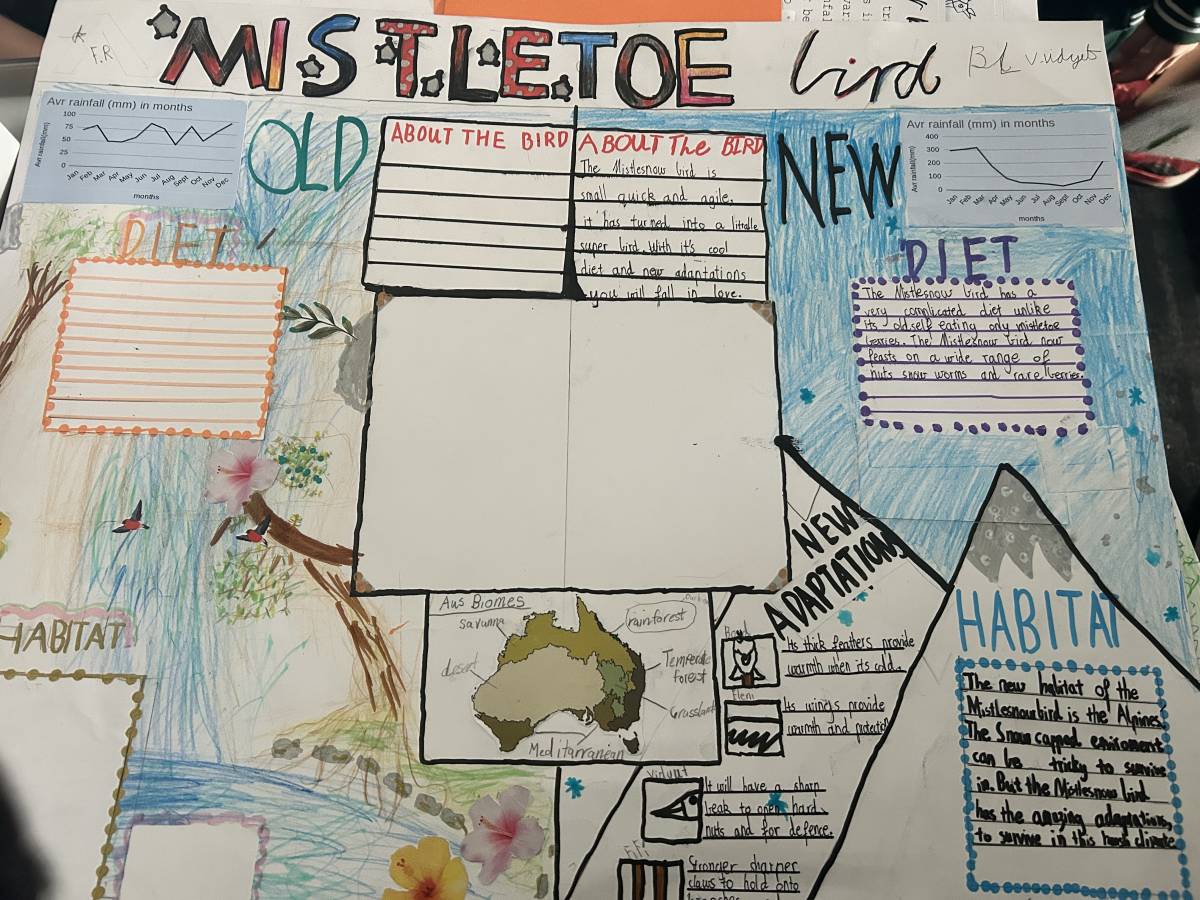 MISTLETOE bird
F.R
Avr rainfall (mm) in months
100
75
50
25
0
Avr rainfall(mm)
Jan Feb Mar Apr May Jun Jul Aug Sept Oct Nov Dec
months
OLD
ABOUT THE BIRD
ABOUT The BIRD
The Mistlesnow bird is
small quick and agile.
it has turned into a littalle
super bird. With it's cool
diet and new adantations
you will fall in love.
NEW
Avr rainfall (mm) in months
400
300
200
100
0
Avr rainfall(mm)
Jan Feb Mar Apr May Jun Jul Aug Sept Oct Nov Dec
months
DIET
DIET
The Mistlesnow bird has a
very complicated diet unlike
its old self eating only mistletoe
berries. The Mistlesnow bird now
feasts on a wide range of
nuts snow worms and rare berries.
HABITAT
Aus Biomes
savanna
rainforest
desert
Temperate
forest
Grassland
Meditarranean
NEW
ADAPTATIONS
Its thick feathers provide
warmth when its cold.
Its wings provide
warmth and
It will have a sharp
beak to open hards
nuts and for defence.
FiFi
Stronger sharper
claws to hold onto
HABITAT
The new habitat of the
Mistlesnowbird is the Alpines.
The Snow capped enviroment
can be tricky to survive
in. But the Mistlesnow bird
has the amazing adaptations,
to survive in this harsh climate